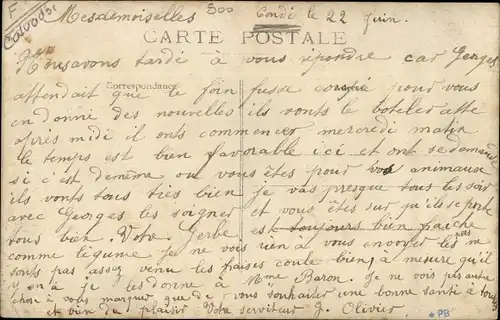 F
Calvados
Mesdemoiselles
500
Condé le 22 Juin.
CARTE POSTALE
Nousavons tardé à vous répondre car Georges
Correspondance
attendait que le foin fusse pour vous
en donné des nouvelles ils vonts le boteler cette
après midi il ont commencer mercredi matin
le temps est bien favorable ici et ont se demande
si c'est demême ou vous êtes pour vos animaux
ils vonts tous très bien je vas presque tous les soirs
avec Georges les soigner et vous êtes sur qu'ils se porte
tous bien. Votre Gerbe est toujours bien fraîche
comme légume je ne vois rien a vous envoyer les ne
sonts pas assez venu les fraises coule bien, à mesure qu'il
y en a je les donne à Mme Baron. Je ne vois pas autre
chose à vous marquer que de vous souhaiter une bonne santé à tous
et bien du plaisir Votre serviteur J. Olivier
*PB